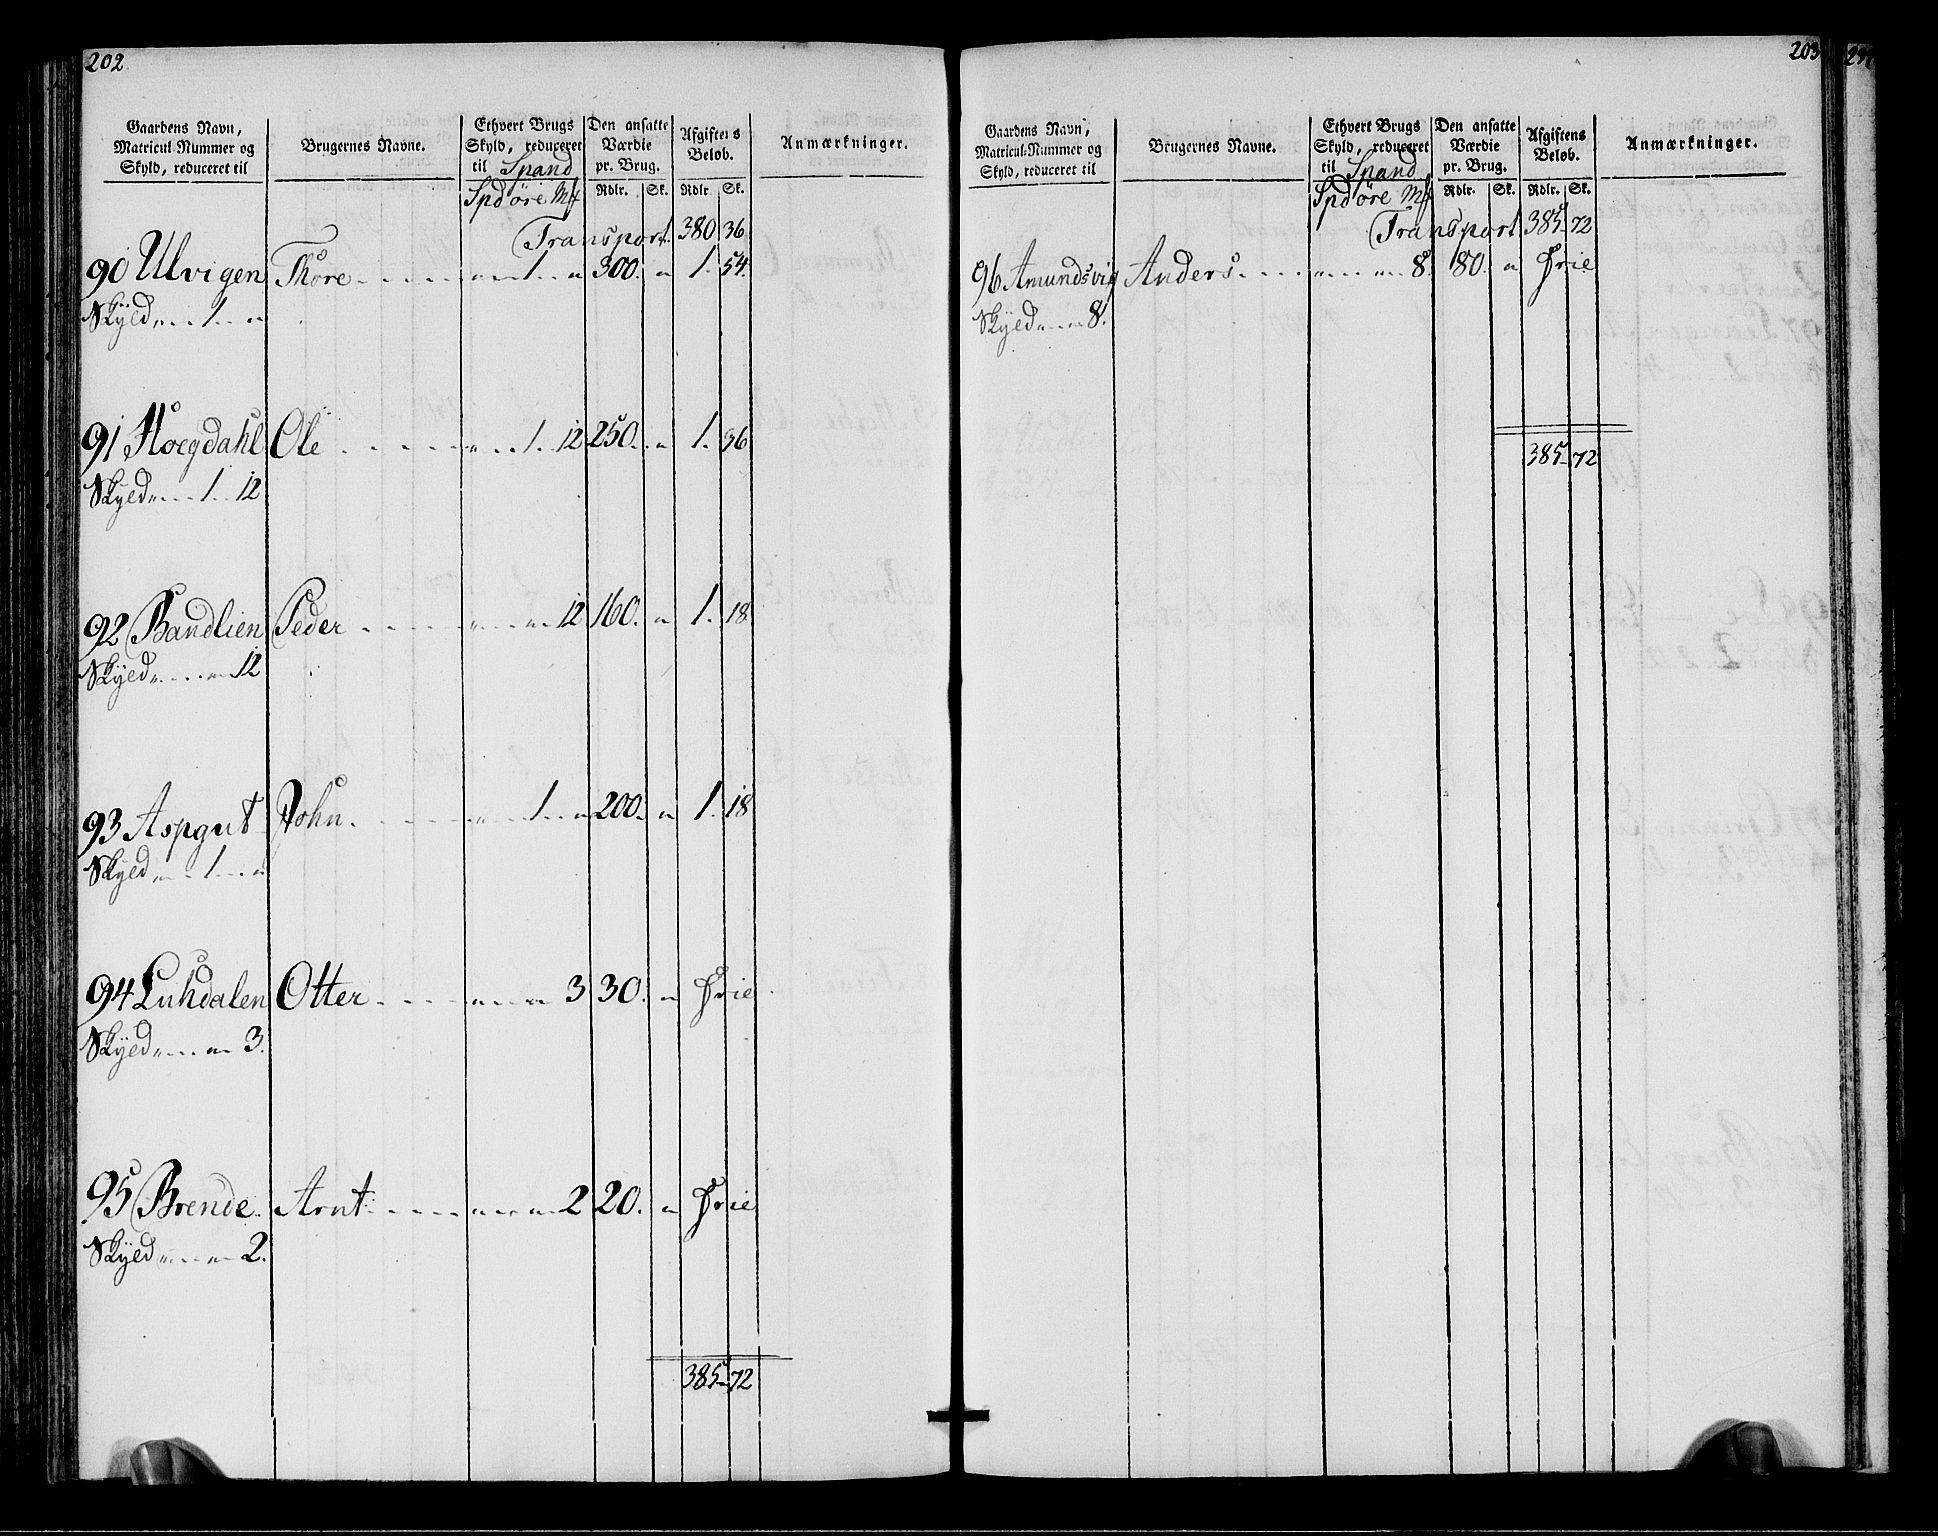 202
Gaardens Navn, Matricul Nummer og Skyld, reduceret til
Brugernes Navne.
Ethvert Brugs Skyld, reduceret til Spand
Den ansatte Værdie pr. Brug.
Afgiftens Beløb.
Anmærkninger.
Spd øre Mk Rdlr. Sk. Rdlr. Sk.
Transport. 380 36
90 Ulvigen Thore 1 300. 1. 54.
Skyld 1
91 Hoegdahl Ole 1 12 250. 1. 36
Skyld 1 12
92 Bandlien Peder 12 160. 1. 18
Skyld 12
93 Aspgut John. 1 200. 1. 18
Skyld 1
94 Luhdalen Otter 3 30. frie
Skyld 3.
95 Brende. Arnt 2 20. frie
Skyld 2.
385 72
203
Gaardens Navn, Matricul-Nummer og Skyld, reduceret til
Brugernes Navne.
Ethvert Brugs Skyld, reduceret til Spand
Den ansatte Værdie pr. Brug.
Afgiftens Beløb.
Anmærkninger.
Spd øre Mk Rdlr. Sk. Rdlr. Sk.
Transport 385 72
96 Amundsvig Anders. 8. 80. frie
Skyld 8.
385 72